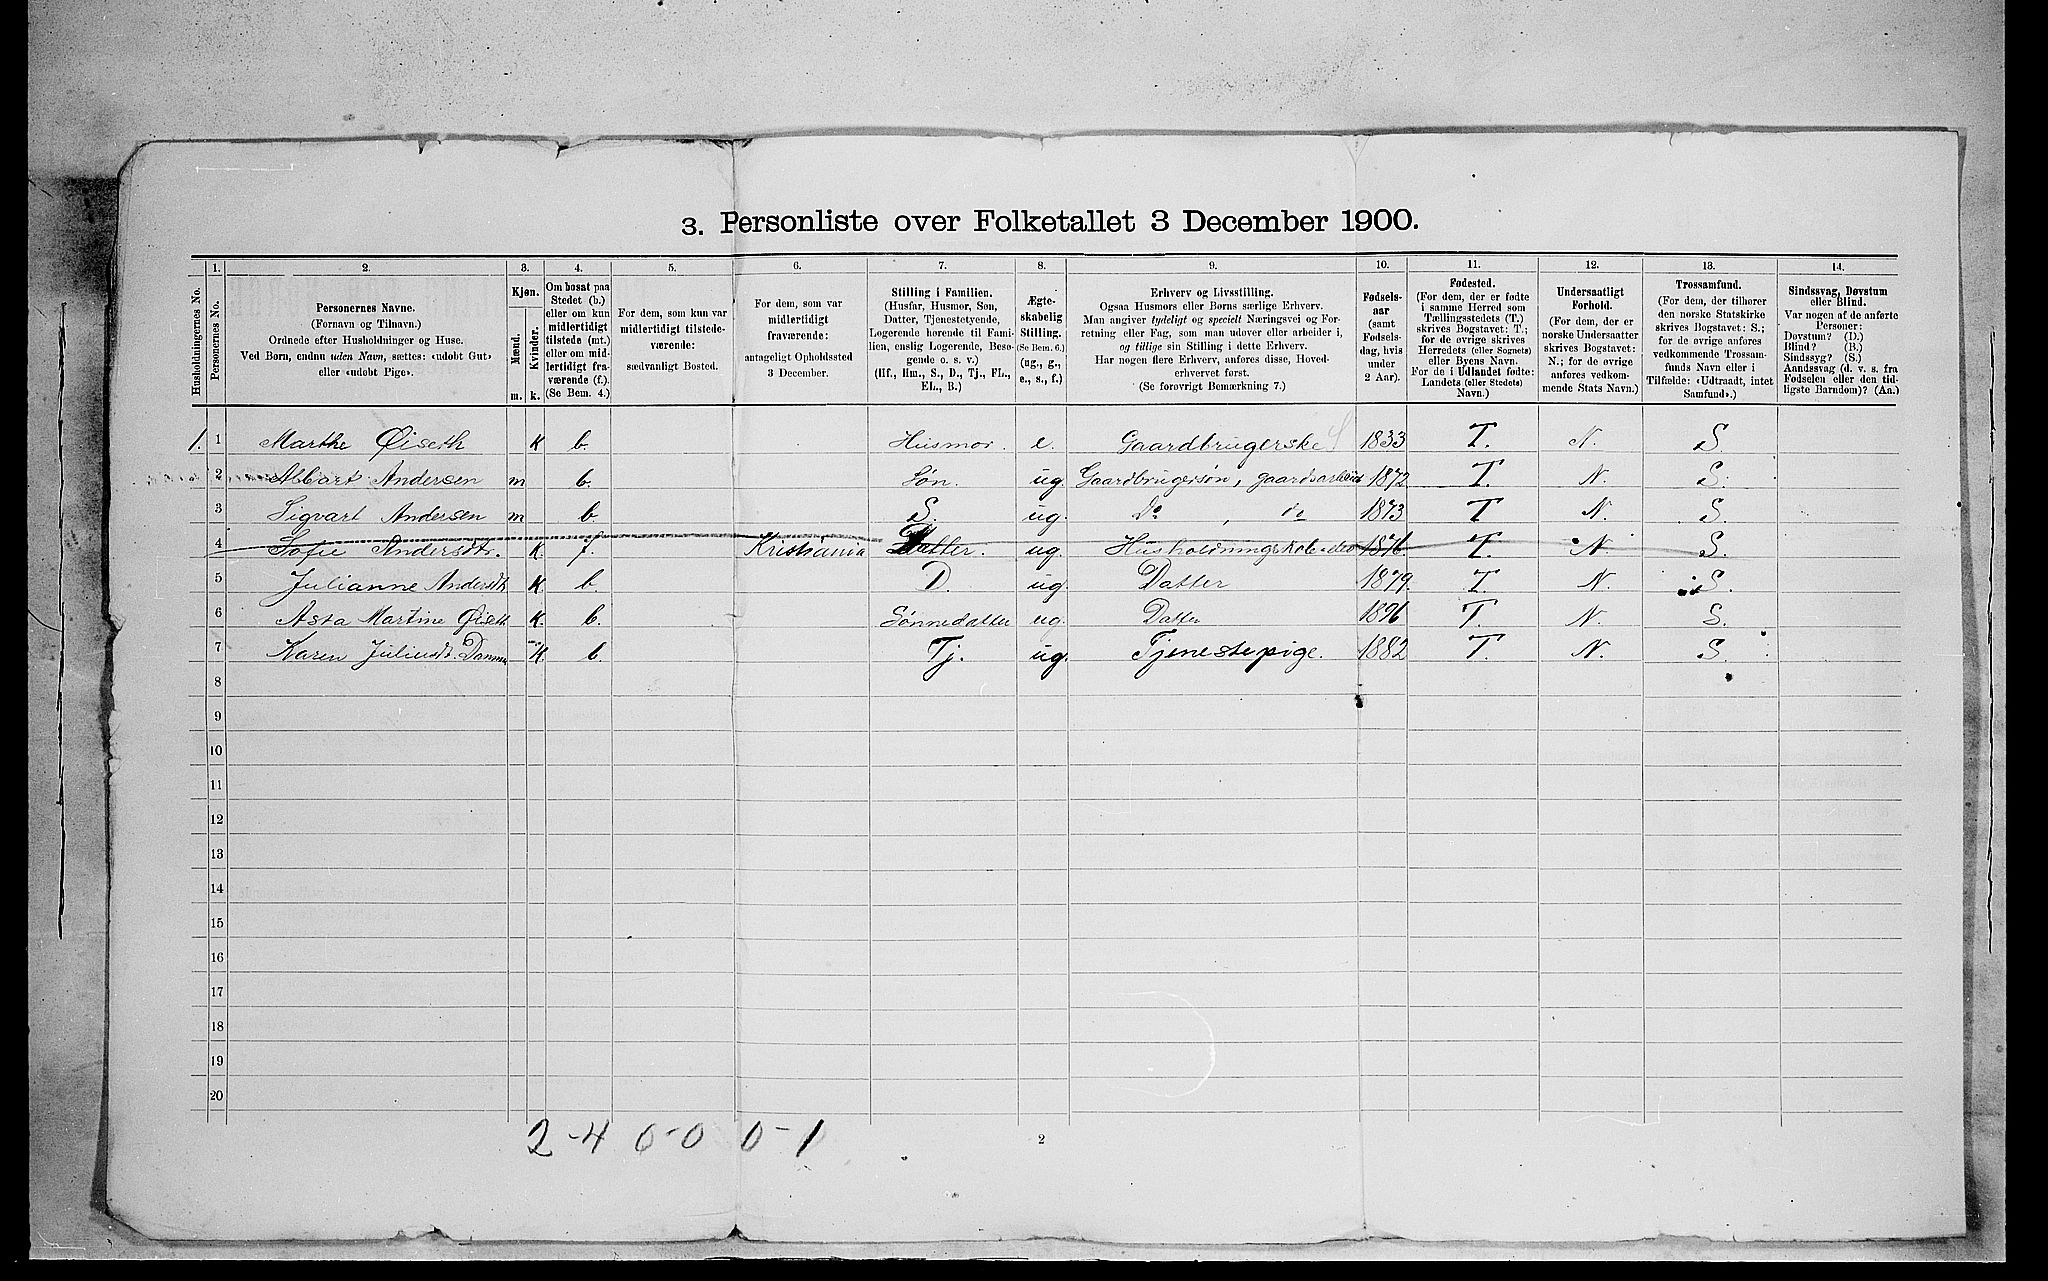 3. Personliste over Folketallet 3 December 1900.
Husholdningernes No.
1. Personernes No.
2. Personernes Navne. (Fornavn og Tilnavn.) Ordnede efter Husholdninger og Huse. Ved Børn, endnu uden Navn, sættes: «udøbt Gut» eller «udøbt Pige».
3. Kjøn. Mænd. m. Kvinder. k.
4. Om bosat paa Stedet (b.) eller om kun midlertidigt tilstede (mt.) eller om midlertidigt fraværende (f.). (Se Bem. 4.)
5. For dem, som kun var midlertidigt tilstedeværende: sædvanligt Bosted.
6. For dem, som var midlertidigt fraværende: antageligt Opholdssted 3 December.
7. Stilling i Familien. (Husfar, Husmor, Søn, Datter, Tjenestetyende, Logerende hørende til Familien, enslig Logerende, Besøgende o. s. v.) (Hf., Hm., S., D., Tj., FL., EL., B.)
8. Ægteskabelig Stilling. (Se Bem. 6.) (ug., g., e., s., f.)
9. Erhverv og Livsstilling. Ogsaa Husmors eller Børns særlige Erhverv. Man angiver tydeligt og specielt Næringsvei og Forretning eller Fag, som man udøver eller arbeider i, og tillige sin Stilling i dette Erhverv. Har nogen flere Erhverv, anføres disse, Hovederhvervet først. (Se forøvrigt Bemærkning 7.)
10. Fødselsaar (samt Fødselsdag, hvis under 2 Aar).
11. Fødested. (For dem, der er fødte i samme Herred som Tællingsstedets (T.) skrives Bogstavet: T.; for de øvrige skrives Herredets (eller Sognets) eller Byens Navn. For de i Udlandet fødte: Landets (eller Stedets) Navn.)
12. Undersaatligt Forhold. (For dem, der er norske Undersaatter skrives Bogstavet: N.; for de øvrige anføres vedkommende Stats Navn.)
13. Trossamfund. (For dem, der tilhører den norske Statskirke skrives Bogstavet: S.; for de øvrige anføres vedkommende Trossamfunds Navn eller i Tilfælde: «Udtraadt, intet Samfund».)
14. Sindssvag, Døvstum eller Blind. Var nogen af de anførte Personer: Døvstum? (D.) Blind? (B.) Sindssyg? (S.) Aandssvag (d. v. s. fra Fødselen eller den tidligste Barndom)? (Aa.)
1. 1 Marthe Øiseth K b. Husmor. e. Gaardbrugerske 1833 T. N. S.
2 Andersen m b. Søn. ug. Gaardbrugersøn, 1872 T. N. S.
3 Sigvart Andersen m b. S. ug. Do , do 1873 T N. S.
4 Sofie Andersdtr. K. f. Kristiania Datter. ug. 1876. T. N. S.
5 Julianne Andersdt. K b. D. ug. Datter 1879. T. N. S.
6 Asta Martine Øiseth K. b. Sønnedatter ug. Datter 1896 T. N. S.
7 Karen Juliusdt. K b. Tj. ug. Tjenestepige. 1882 T. N. S.
8
9
10
11
12
13
14
15
16
17
18
19
20
2-4 0-0 0-1
2